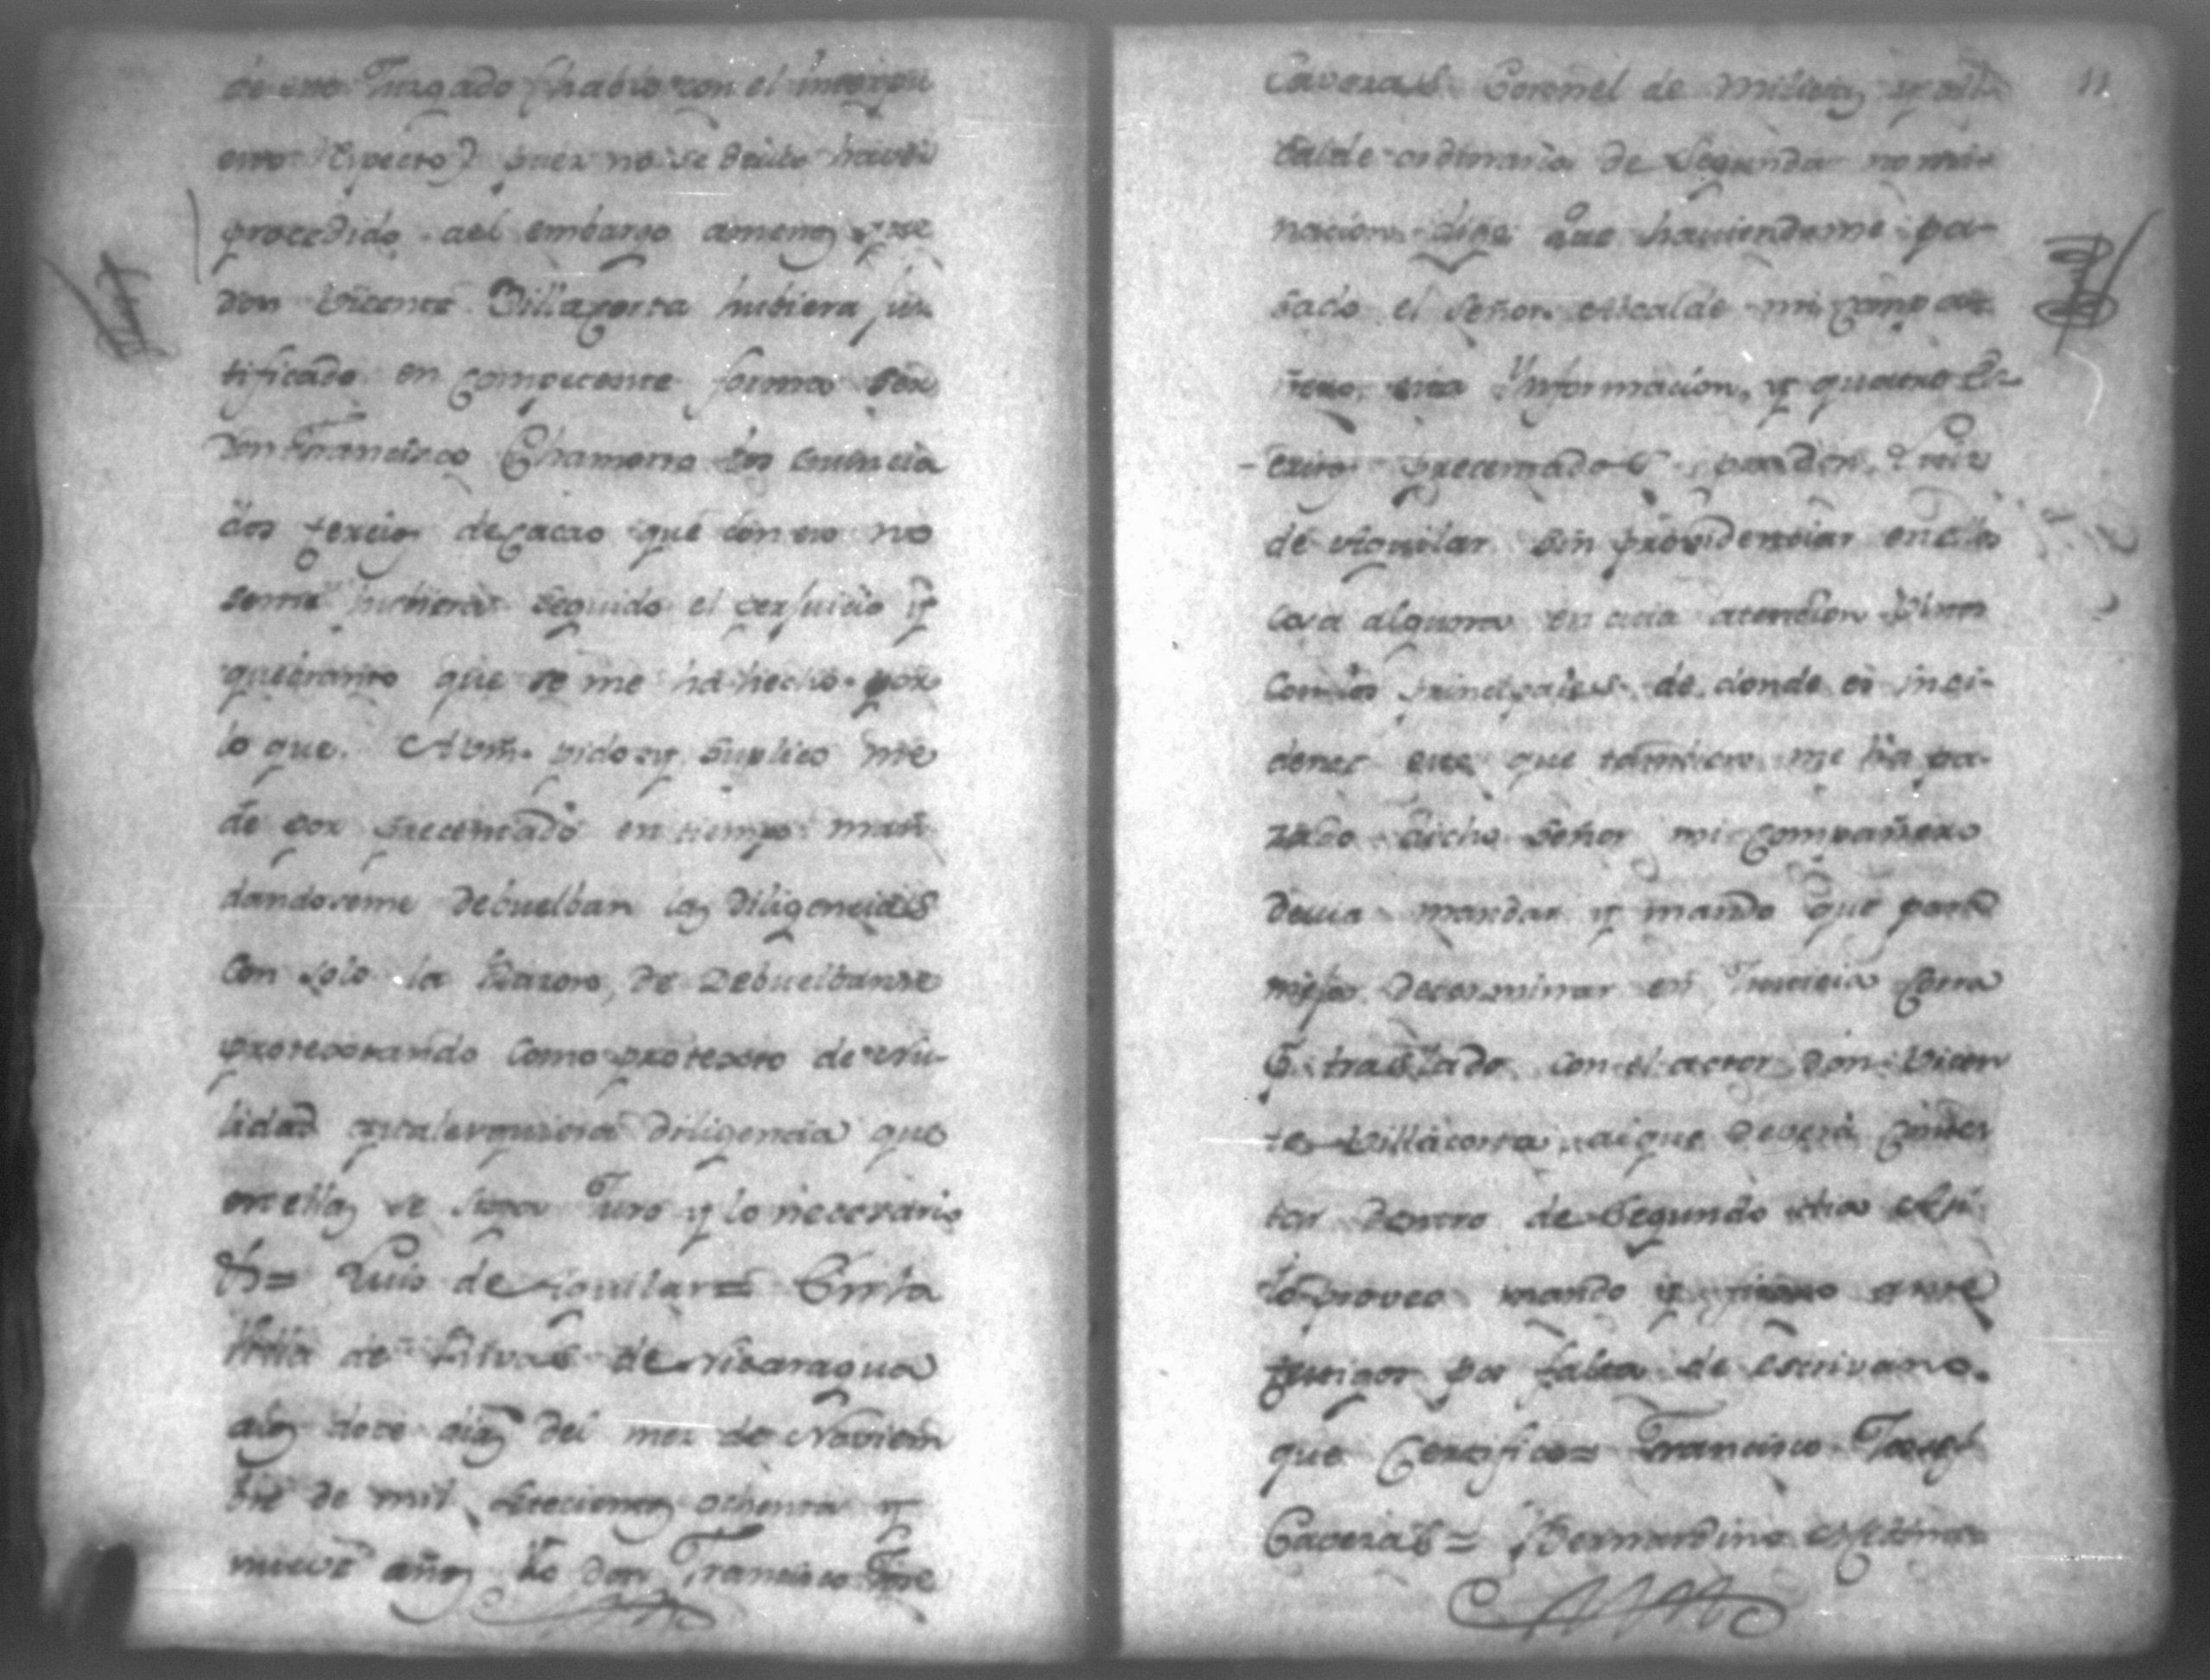 de este Juzgado (hablo con el
respecto) pues no se devio haver
procedido al embargo amenos que
don Vicente Villacorta hubiera jus
tificado en competente forma ser
don Francisco Chamorro los
dos tercios de cacao que con eso no
seme hubiera seguido el perjuicio y
quebranto que se me há hecho por
lo que. A Vm. pido y suplico me
dé por presentado en tiempo man
dandoseme debuelban las diligencias
con solo la Razon, de debuelbanse
protextando como protexto de nu-
lidad qualesquiera diligencia que
en ellas se Juro y lo necesario
= Luis de Aguilar = En la
Villa de Rivas de Nicaragua
alos doce dias del mes de Noviem
bre de mil setecientos ochenta y
nueve años Yo don Francisco
Caveras Coronel de Milicias y al
calde ordinario de Segunda nomi-
nacion dije que haviendome pa-
sado el Señor Alcalde mi compa
ñero, esta Ynformacion, y quatro Es-
critos presentados por don Luis
de Aguilar sin providenciar en ellos
cosa alguna en cuia atencion
con los principales de donde es inci-
dente este que tambien me ha pa-
zado dicho Señor mi compañero
devia mandar y mando que para
mejor determinar en Justicia corra
traslado con el actor don Vicen
te Villacorta al que deverá contes
tar dentro de Segundo dia Asi
lo proveo mando y firmo ante
testigos por falta de escrivano.
que Certifico = Francisco Josef
Caveras = Bernardino
11